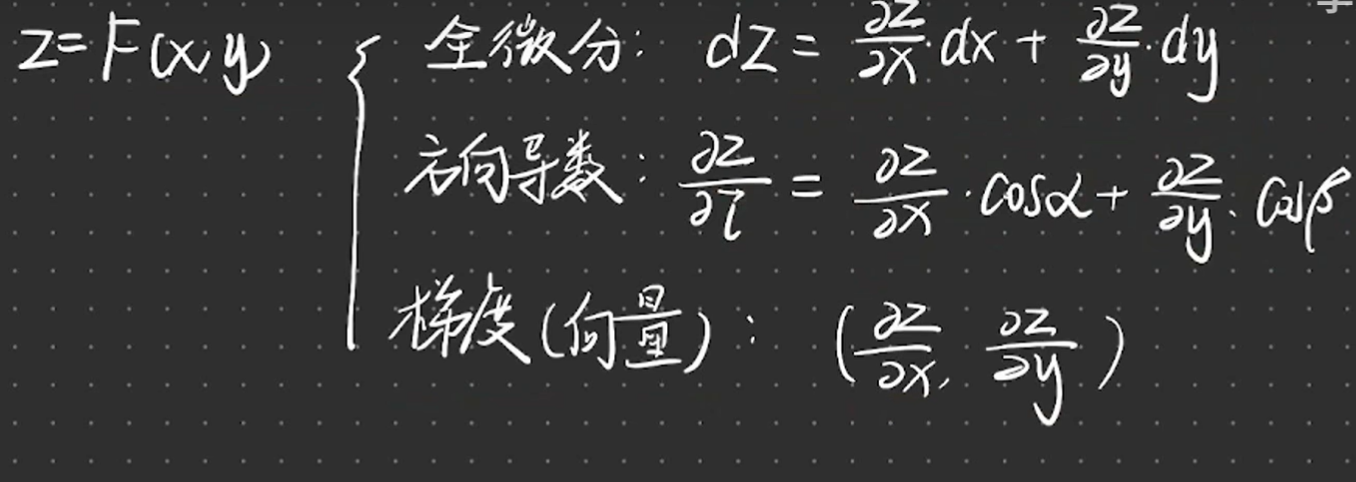 z=F(x,y) { 全微分: dz = ∂z/∂x · dx + ∂z/∂y · dy
方向导数: ∂z/∂l⃗ = ∂z/∂x · cosα + ∂z/∂y · cosβ
梯度(向量): (∂z/∂x, ∂z/∂y)